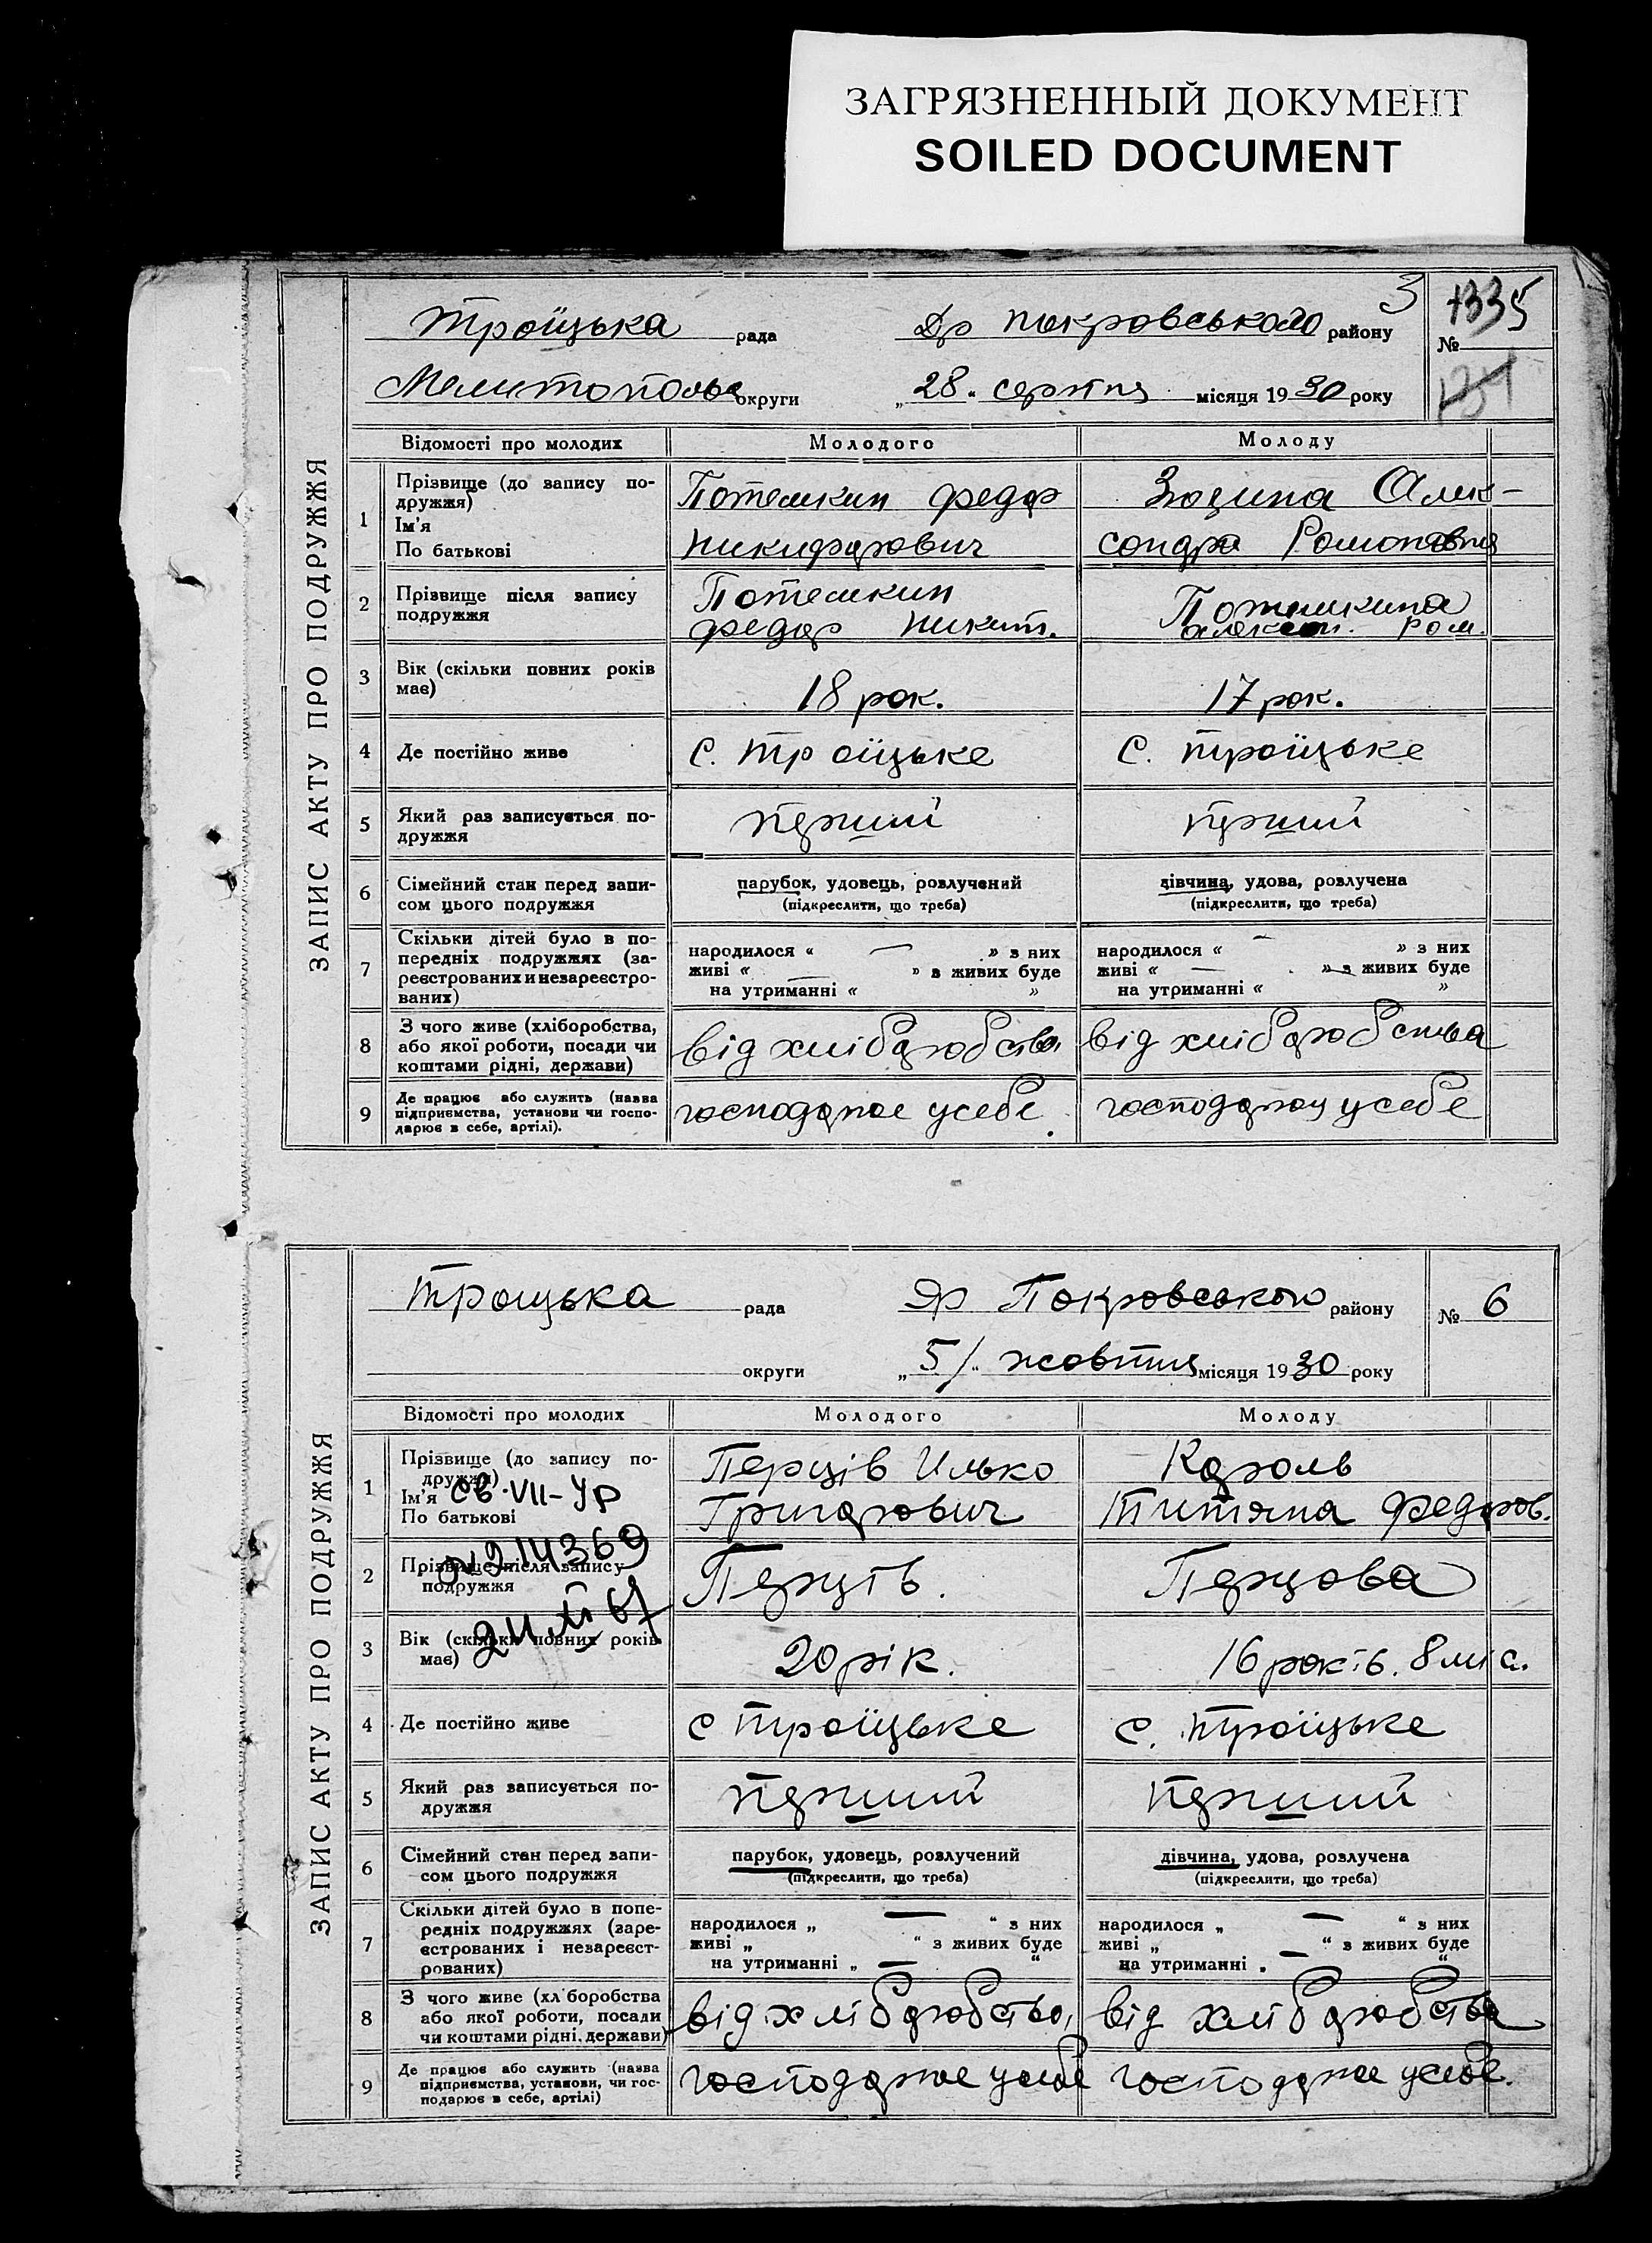 ЗАГРЯЗНЕННЫЙ ДОКУМЕНТ
SOILED DOCUMENT
3
ЗАПИС АКТУ ПРО ПОДРУЖЖЯ
Троїцька рада Др Покровського району № 5
Мелитополь округи „28“ серпня місяця 1930 року
Відомості про молодих Молодого Молоду
1 Прізвище (до запису по-
дружжя)
Ім'я
По батькові
Потемкин Федор
Никифорович
Алек-
сандра Романовна
2 Прізвище після запису
подружжя
Потемкин
Федор Никит.
Потемкина
Ром.
3 Вік (скільки повних років
має)
18 рок. 17 рок.
4 Де постійно живе С. Троїцьке С. Троїцьке
5 Який раз записується по-
дружжя
перший перший
6 Сімейний стан перед запи-
сом цього подружжя
парубок, удовець, розлучений
(підкреслити, що треба)
дівчина, удова, розлучена
(підкреслити, що треба)
7 Скільки дітей було в по-
передніх подружжях (за-
реєстрованих и незареєстро-
ваних)
народилося « — » з них
живі « — » з живих буде
на утриманні « »
народилося « — » з них
живі « — » з живих буде
на утриманні « »
8 З чого живе (хліборобства,
або якої роботи, посади чи
коштами рідні, держави)
від хліборобства від хліборобства
9 Де працює або служить (назва
підприємства, установи чи госпо-
дарює в себе, артілі).
господарює у себе. господарює у себе
ЗАПИС АКТУ ПРО ПОДРУЖЖЯ
Троцька рада Др Покровського району № 6
округи „5/“ жовтня місяця 1930 року
Відомості про молодих Молодого Молоду
1 Прізвище (до запису по-
дружжя)
Ім'я
По батькові
Св. VII-УР
№ 214369
Перців Илько
Григорович
Король
Титяна Федоров.
2 Прізвище після запису
подружжя
Перців. Перцова
3 Вік (скільки повних років
має)
20 рік. 16 років. 8 міс.
4 Де постійно живе с Троїцьке с. Троїцьке
5 Який раз записується по-
дружжя
перший перший
6 Сімейний стан перед запи-
сом цього подружжя
парубок, удовець, розлучений
(підкреслити, що треба)
дівчина, удова, розлучена
(підкреслити, що треба)
7 Скільки дітей було в попе-
редніх подружжях (заре-
єстрованих і незареєст-
рованих)
народилося „ — “ з них
живі „ “ з живих буде
на утриманні „ — “
народилося „ — “ з них
живі „ “ з живих буде
на утриманні „ — “
8 З чого живе (хліборобства
або якої роботи, посади
чи коштами рідні, держави)
від хліборобства, від хліборобства
9 Де працює або служить (назва
підприємства, установи, чи гос-
подарює в себе, артілі)
господарює у себе господарює у себе.